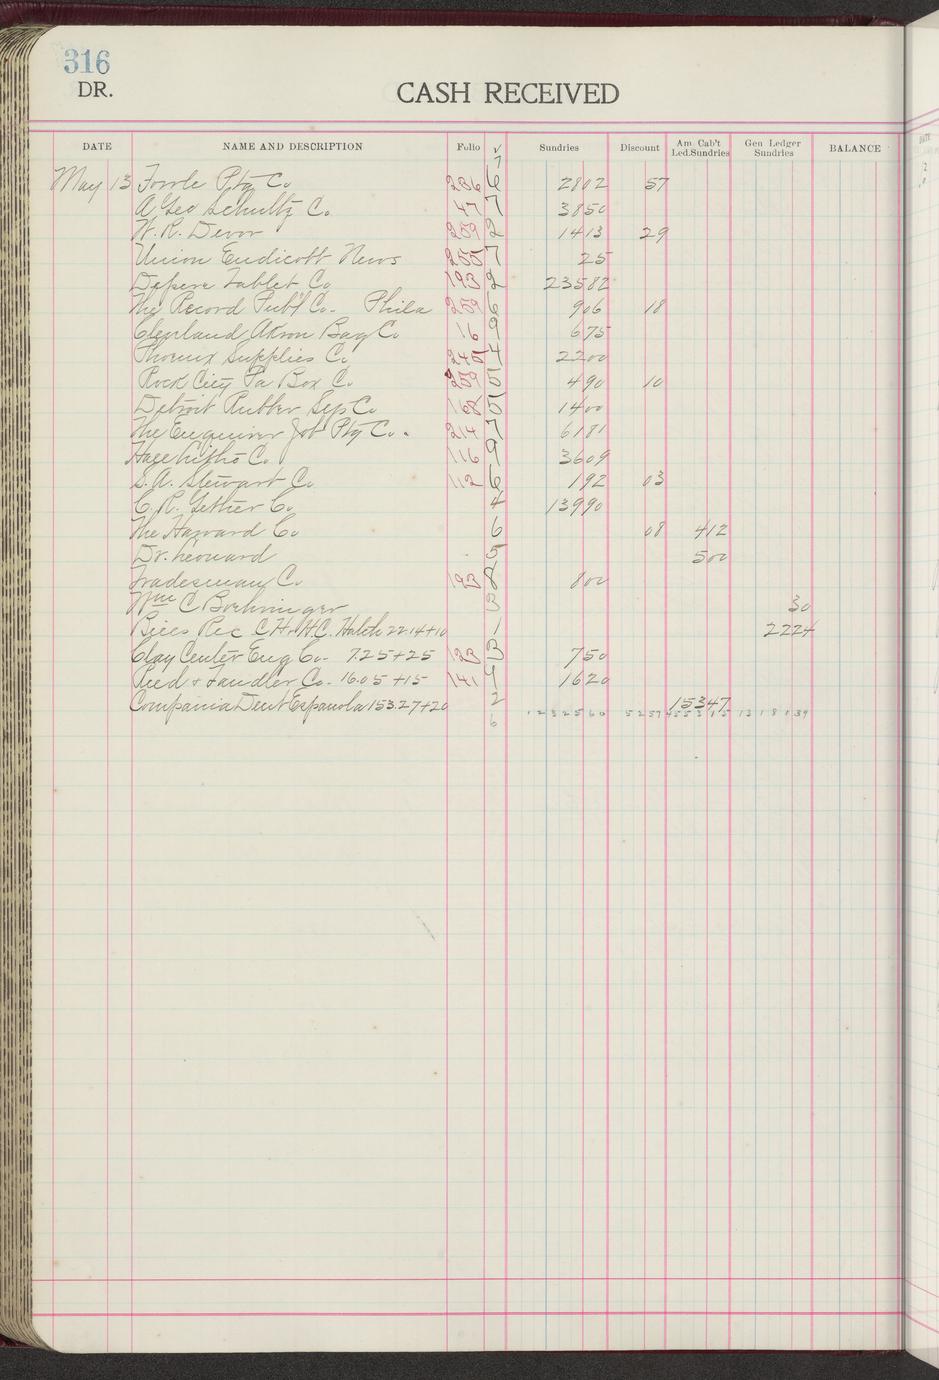 316
DR.
CASH RECEIVED
DATE NAME AND DESCRIPTION Folio √ Sundries Discount Am Cab't Led.Sundries Gen Ledger Sundries BALANCE
7
May 13 Fowle Ptg Co 236 6 2802 57
A Geo Schultz Co. 47 7 3850
W. R. Devor 259 2 1413 29
Union Endicott News 255 7 25
Depere Tablet Co 193 2 23582
The Record Publ Co - Phila 259 6 906 18
Cleveland Akron Bag Co 16 9 675
Phoenix Supplies Co 245 4 2200
Rock City Pa Box Co. 259 5 490 10
Detroit Rubber Co 168 5 1400
The Enquirer Job Ptg Co. 214 7 6181
Co. 116 9 3609
S. A. Stewart Co 112 6 192 03
C. R. Gether Co. 4 13990
The Harvard Co 6 08 412
Dr. Leonard 5 500
Tradesman Co. 193 8 800
Wm C Boehringer 3 30
Rec C H. H.C. Hatch 22.14+10 1 2224
Clay Center Eng Co. 7.25+25 123 3 750
Reed & Fandler Co. 16.05+15 141 4 1620
Compania Dent Espanola 153.27+20 2 15347
6 1232560 5257 455315 1318139